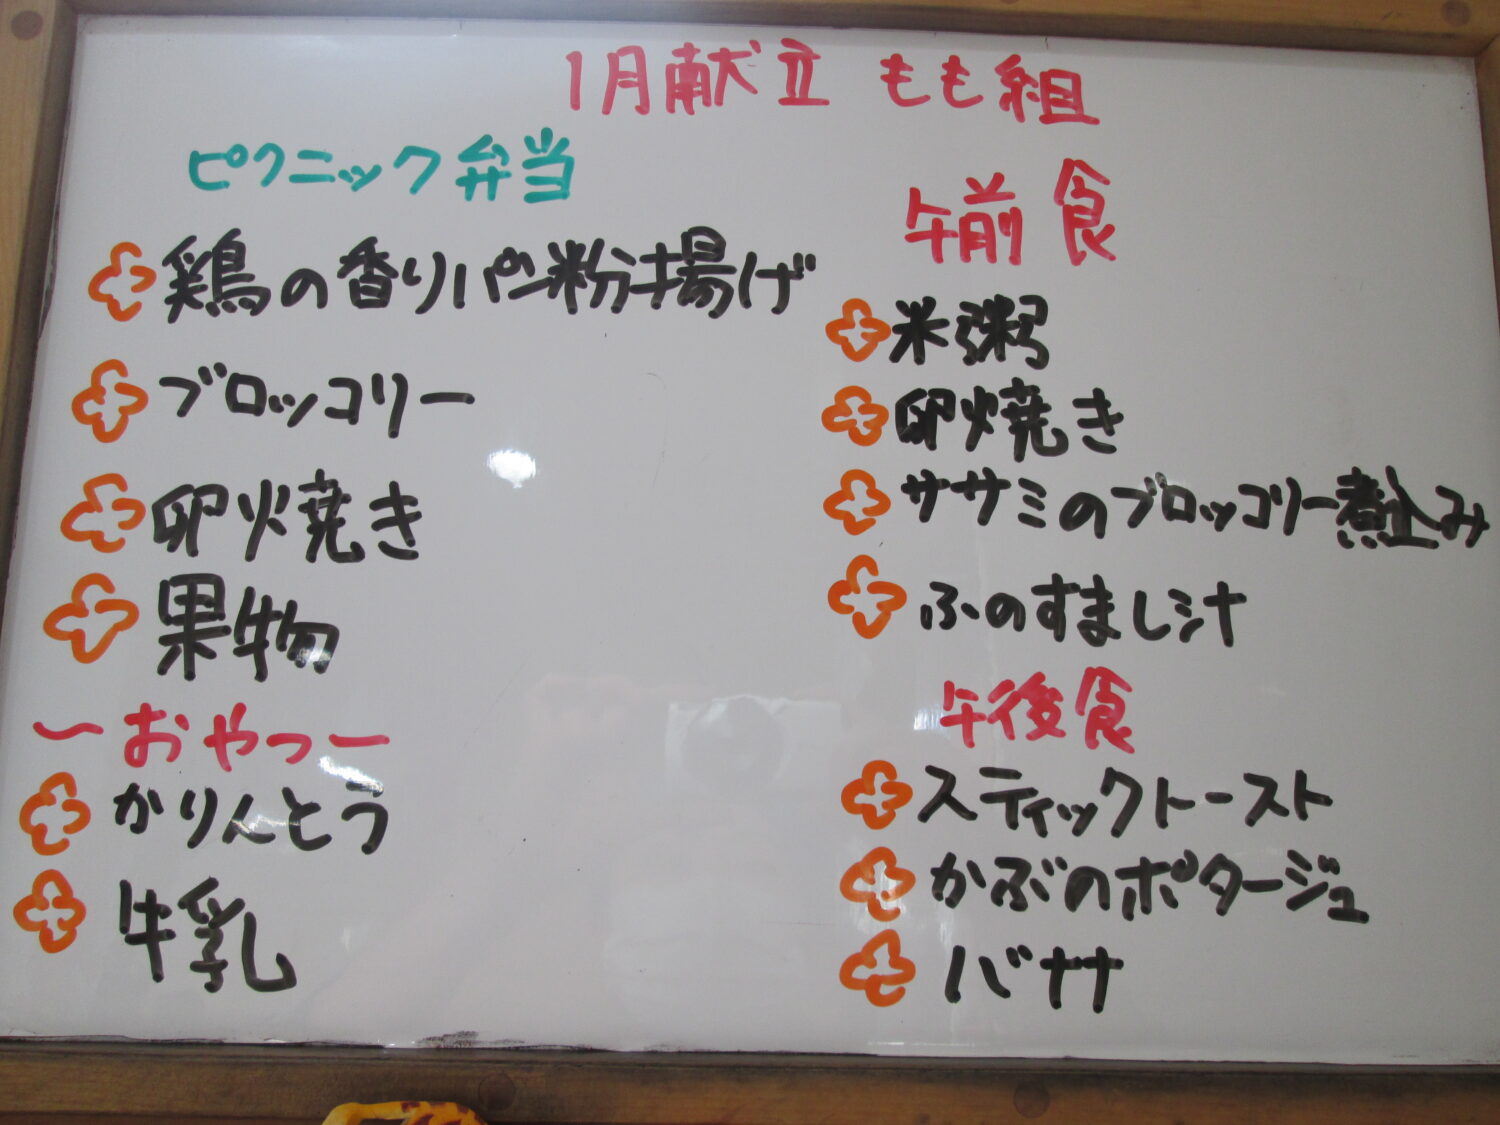 1月献立 もも組
ピクニック弁当
鶏の香りパン粉揚げ
ブロッコリー
卵焼き
果物
〜おやつ〜
かりんとう
牛乳
午前食
米粥
卵焼き
ササミのブロッコリー煮込み
ふのすまし汁
午後食
スティックトースト
かぶのポタージュ
バナナ